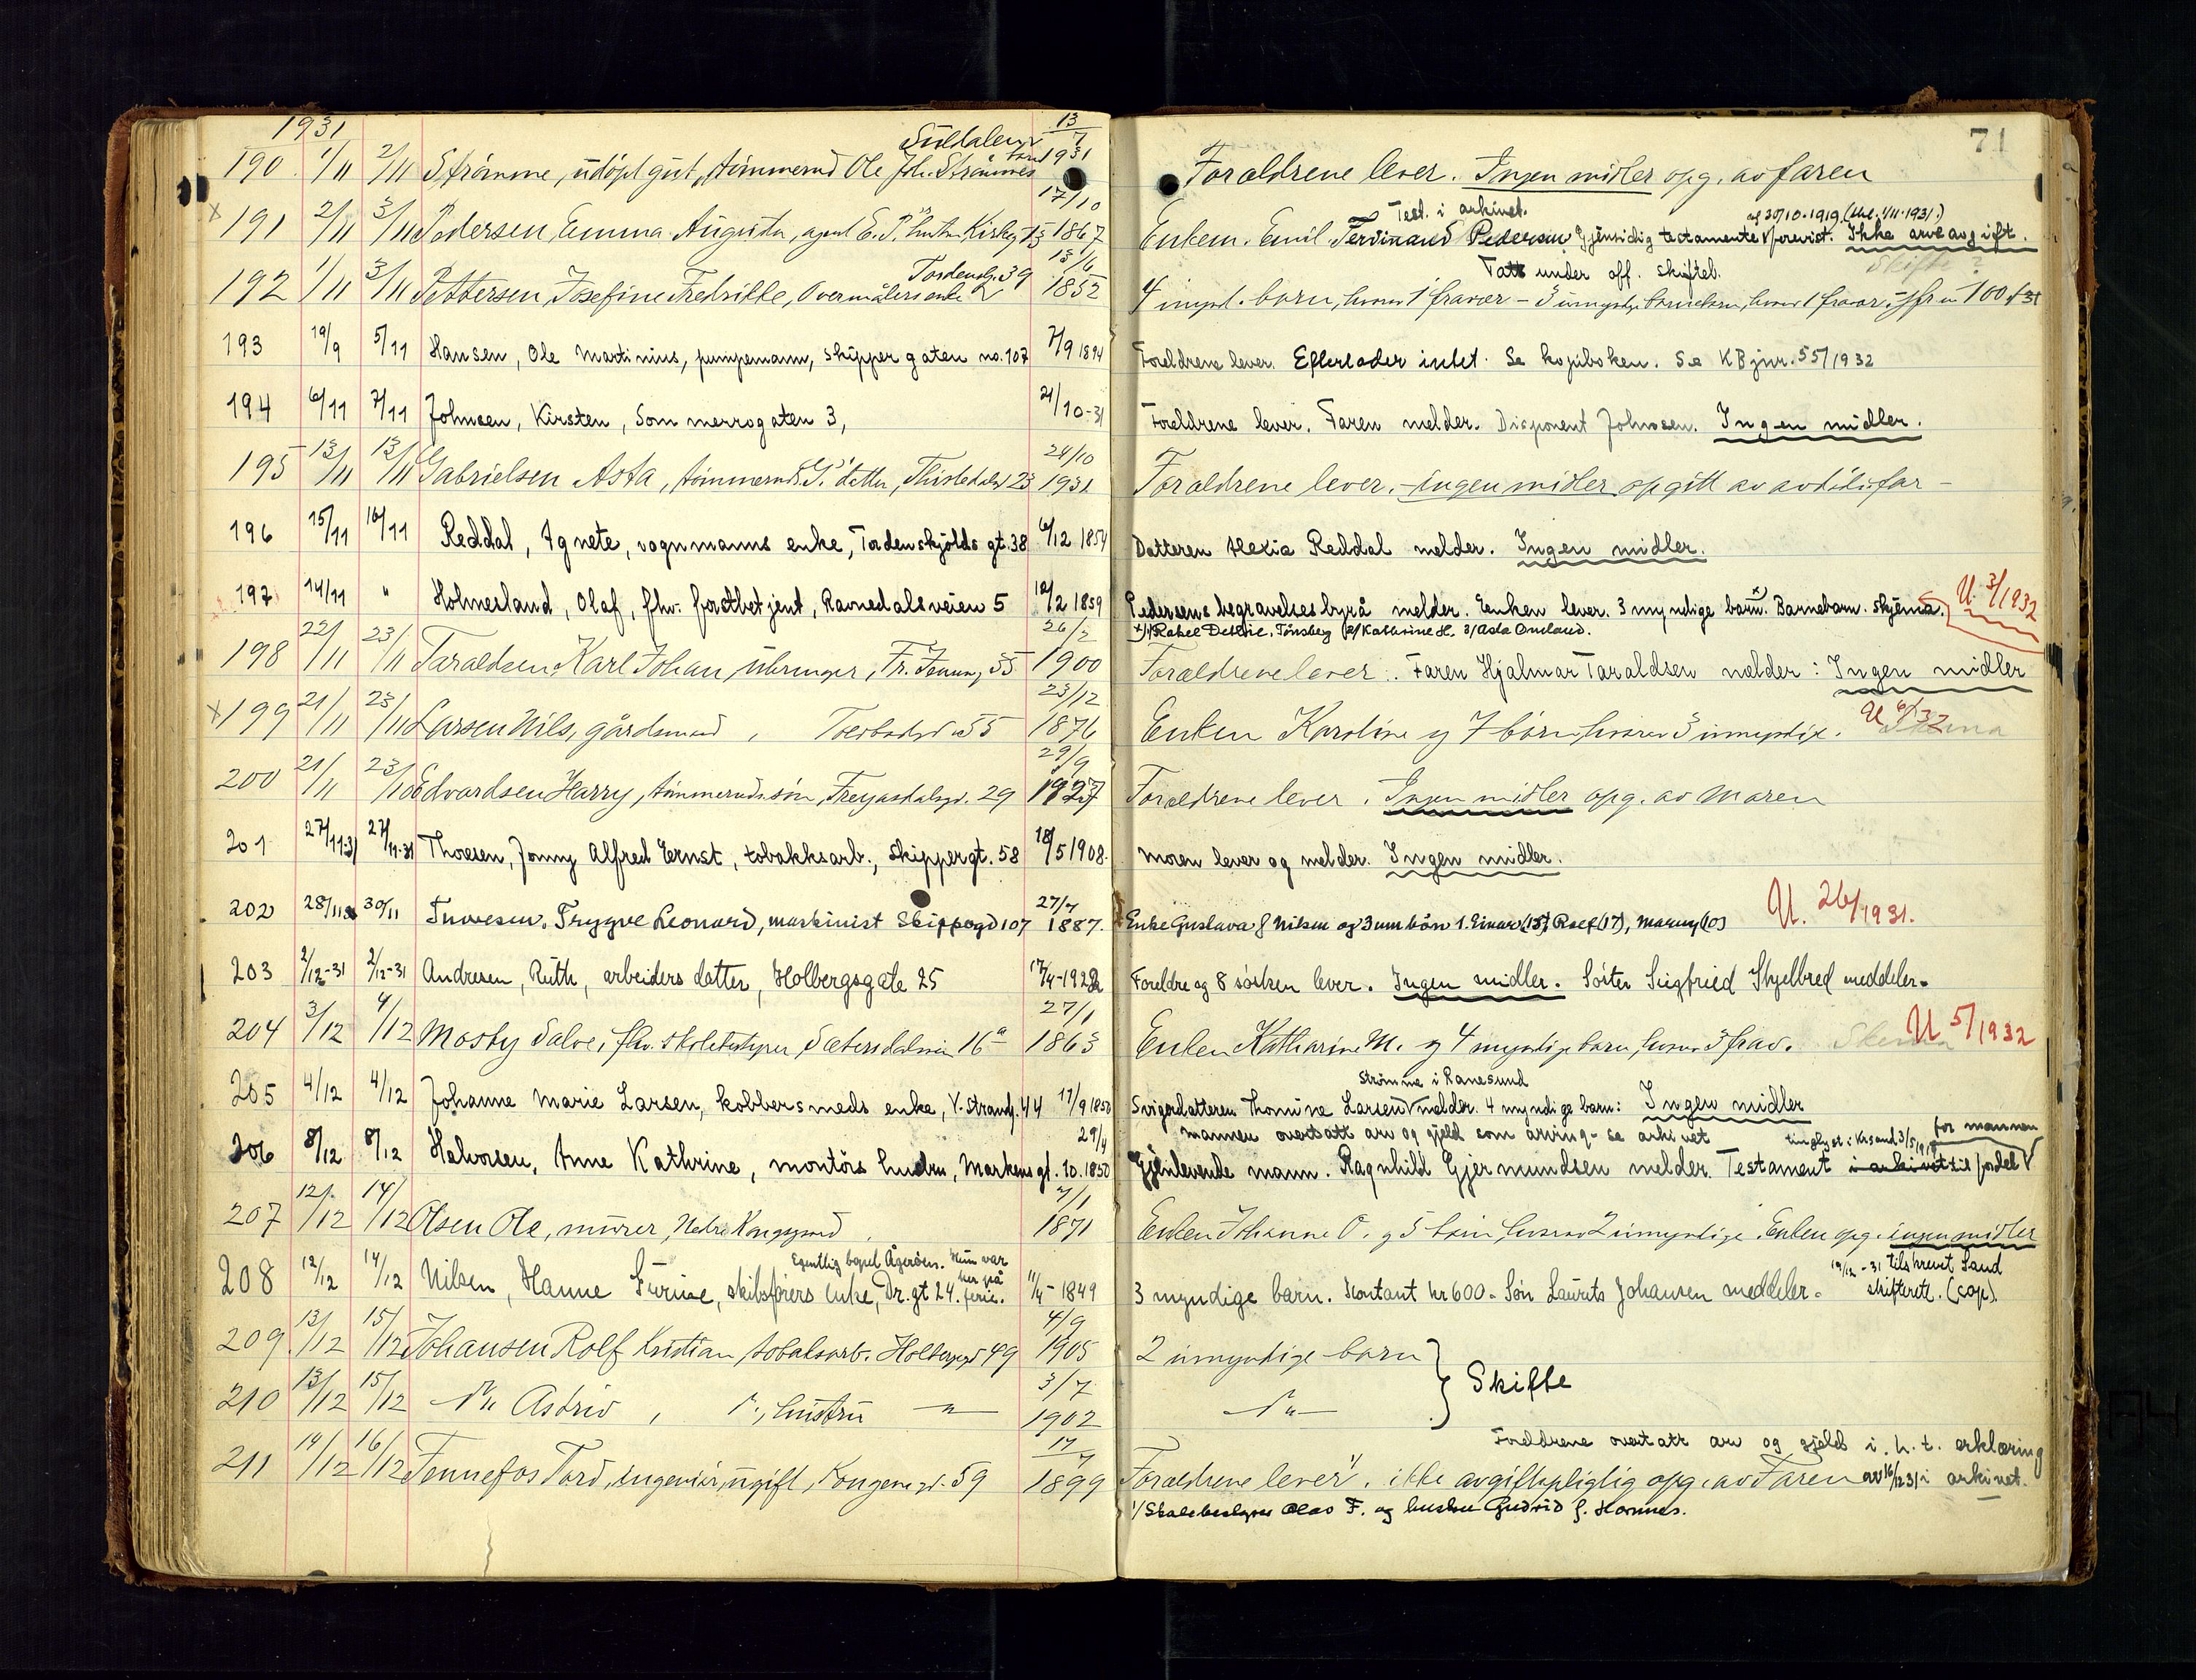 1931
71
Suldalen 13/7
190 1/11 2/11 Strømme, udøpt gut, tømmermd Ole Joh. Strømmes sønn 1931 Foraldrene lever. Ingen midler opg. av faren
Test. i arkivet. av 30/10-1919 (tkl. 1/11-1931.)
17/10
x 191 2/11 3/11 Pedersen, Emma Augusta, agent E. P. hustru Kirkeg 1867 Enkem. Emil Ferdinand Pedersen Gjensidig testamente forevist. Ikke arveavgift.
Tatt under off. skifteb. Skifte?
Tordenskg. 39 13/6
192 1/11 3/11 Pettersen, Josefine Fredrikke, Overmålers enke 1852 4 mynd. born, hvorav 1 fravær - 3 umyndige barnebarn, hvorav 1 fravær
193 19/9 5/11 Hansen, Ole Martinius, pumpemann, Skippergaten no. 107 7/9 1894 Foreldrene lever. Efterlader intet. Se kopiboken. Se KB jnr. 55/1932
194 6/11 7/11 Johnsen, Kirsten, Sommerrogaten 3, 21/10-31 Foreldrene lever. Faren melder. Disponent Johnsen. Ingen midler.
24/10
195 13/11 13/11 Gabrielsen Asta, tømmermd. G.' datter, Thistedalsv 23 1931 Foraldrene lever. - ingen midler opgitt av avdødes far -
196 15/11 16/11 Reddal, Agnete, vognmanns enke, Tordenskjolds gt. 38 6/12 1854 Datteren Alexia Reddal melder. Ingen midler.
197 14/11 " Holmesland, Olaf, fhv. forstbetjent, Ravnedalsveien 5 12/2 1859 Pedersens begravelsesbyrå melder. Enken lever. 3 myndige barn. x Barnebarn. Skjema. U. 3/1932
x) 1/ Rakel Dethlie, Tønsberg 2/ Kathrine H. 3/ Asta Omland.
26/2
198 22/11 23/11 Taraldsen, Karl Johan, Fr. 55 1900 Foraldrene lever. Faren Hjalmar Taraldsen melder: Ingen midler
23/12
x 199 21/11 23/11 Larsen Nils, gårdsmand, Tolbodgd 55 1876 Enken Karoline og 7 børn hvorav 3 umyndig. U 6/32 Skema
29/9
200 21/11 23/11 Edvardsen Harry, tømmermds. søn, Freyasdalsgd. 29 1927 Foraldrene lever. Ingen midler opg. av Moren
201 27/11-31 27/11-31 Thorsen, Jonny Alfred Ernst, tobakksarb., Skippergt. 58 18/5 1908. Moren lever og melder. Ingen midler.
27/7
202 28/11 30/11 Tryggve Leonard, maskinist Skippegd 107 1887. Enke Gustava f. Nilsen og 3 um. børn 1. Einar (18) Rolf (17), Marny (10) U. 26/1931.
203 2/12-31 2/12-31 Andresen, Ruth, arbeiders datter, Holbergsgate 25 17/4-1922 Foreldre og 8 søsken lever. Ingen midler. Søster Siegfried Skjelbred meddeler.
27/1
204 3/12 4/12 Mosby Salve, fhv. skolebestyrer, Sætersdalsvn 16 a 1863 Enken Katharine M. og 4 myndige barn, hvorav 3 frav. Skema U 5/1932
Strømme i Randesund
205 4/12 4/12 Johanne Marie Larsen, kobbersmeds enke, V. Strandg. 44 17/9 1850 Svigerdatteren Thomine Larsen melder. 4 myndige barn: Ingen midler
Mannen overtatt arv og gjeld som arving - se arkivet tinglyst i Krsand 3/5 1918 for mannen
29/4
206 8/12 8/12 Halvorsen, Anne Kathrine, montørs hustru, Markens gt. 10. 1850 Gjenlevende mann. Ragnhild Gjermundsen melder. Testament i arkivet til fordel
7/1
207 12/12 14/12 Olsen Ole, murer, Nedre Kongsgaard 1871 Enken Johanne O. og 5 børn, hvorav 2 umyndige. Enken opg. ingen midler
Egentlig bopel Ågerøen. Hun var her på ferie.
19/12-31 tilskrevet Sand skifterett. (cop).
208 12/12 14/12 Nilsen, Hanne Turine, skibsførers enke, Dr. gt 24. 11/4-1849 3 myndige barn. Kontant kr 600. Søn Lauritz Johansen meddeler.
4/9
209. 13/12 15/12 Johansen Rolf Kristian, tobaksarb. Holbergsgd 49 1905 2 umyndige barn } Skifte
3/7
210 13/12 15/12 - " - Astrid, hustru - " - 1902 - " -
Foreldrene overtatt arv og gjeld i. h. t. erklæring
211 14/12 16/12 Fennefos Tord, ingeniør, ugift, Kongens gd. 59 1899 Foraldrene lever 1/. ikke avgiftspligtig opg. av Faren av 16/12 31 i arkivet.
1/ Skolebestyrer Olav F. og hustru Gudrid f. Homnes.